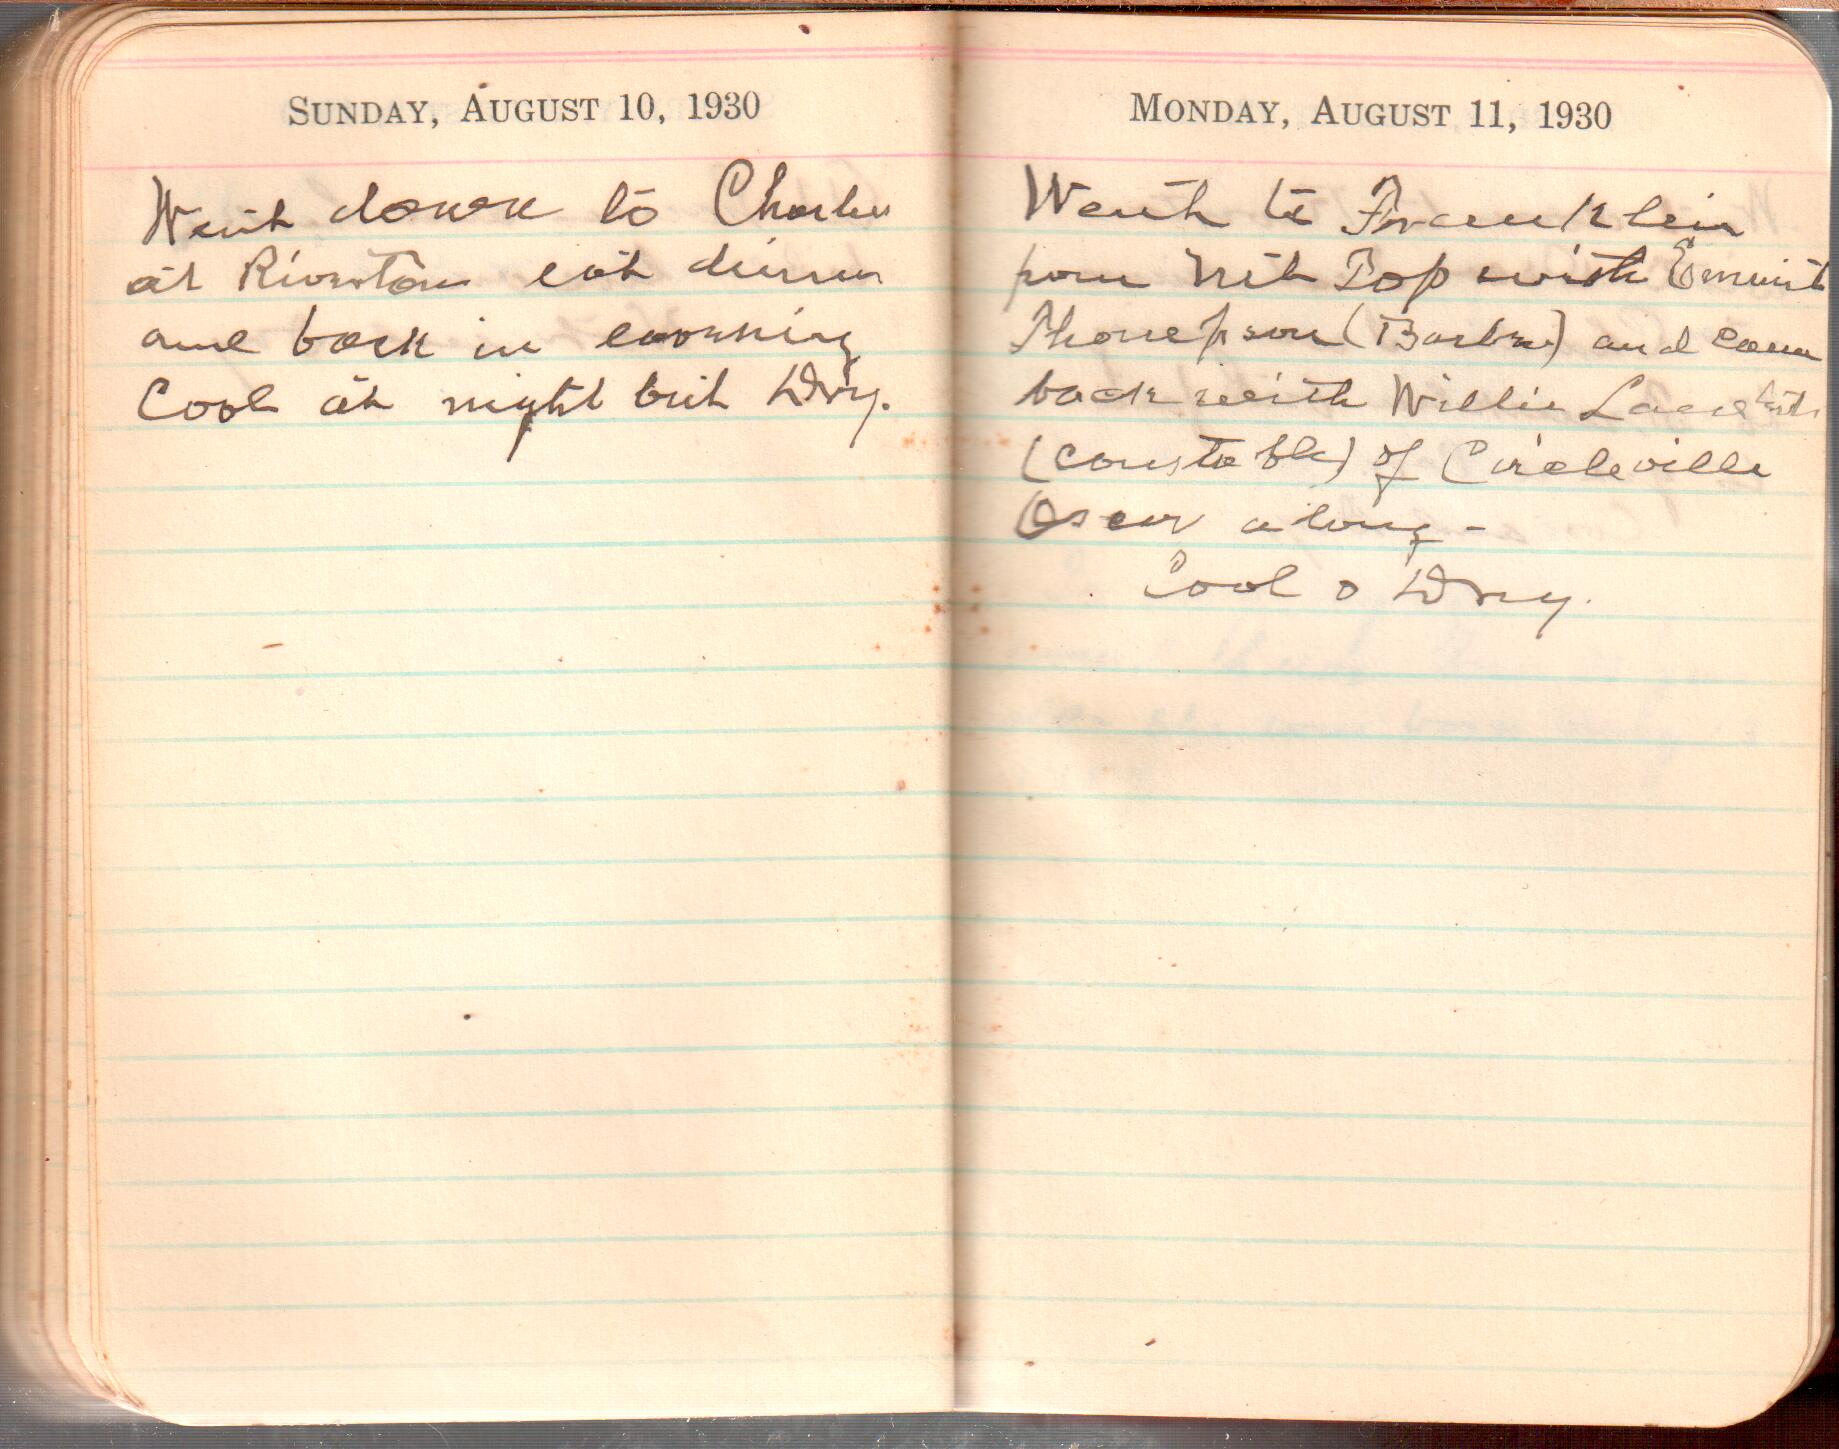 SUNDAY, AUGUST 10, 1930
Went down to Charles
at Riverton eat dinner
and back in evening
Cool at night but Dry.
MONDAY, AUGUST 11, 1930
Went to Franklin
from Mt Top with Emmit
Thompson (Barber) and came
back with Willie
(constable) of Circleville
Oscar along -
Cool & Dry.